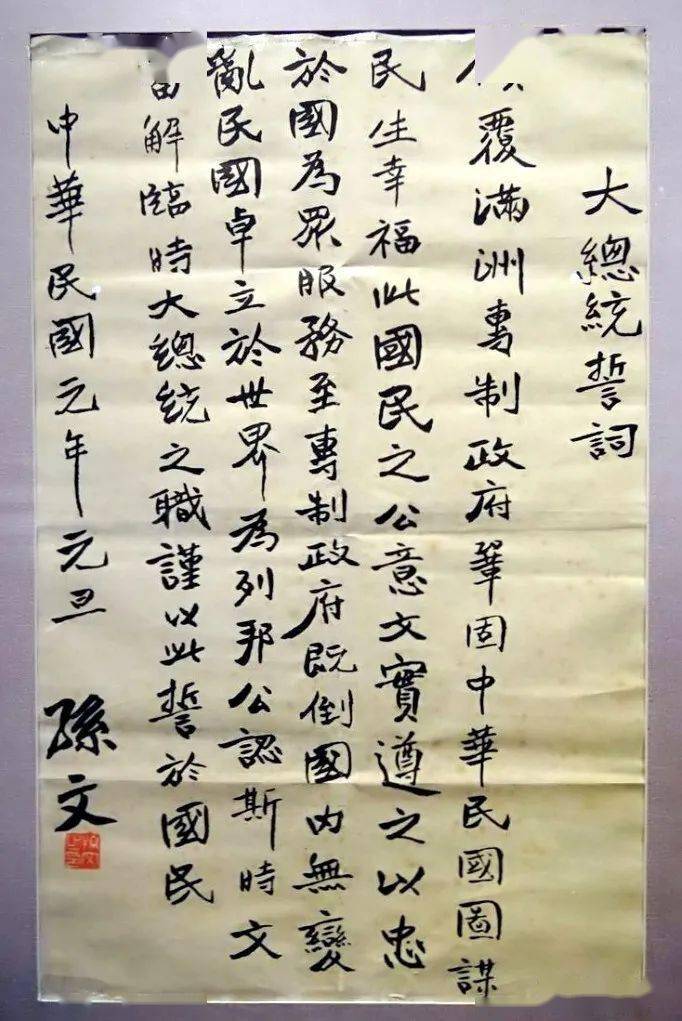 大總統誓詞
覆滿洲專制政府鞏固中華民國圖謀
民生幸福此國民之公意文實遵之以忠
於國為眾服務至專制政府既倒國內無變
亂民國卓立於世界為列邦公認斯時文
解臨時大總統之職謹以此誓於國民
中華民國元年元旦 孫文